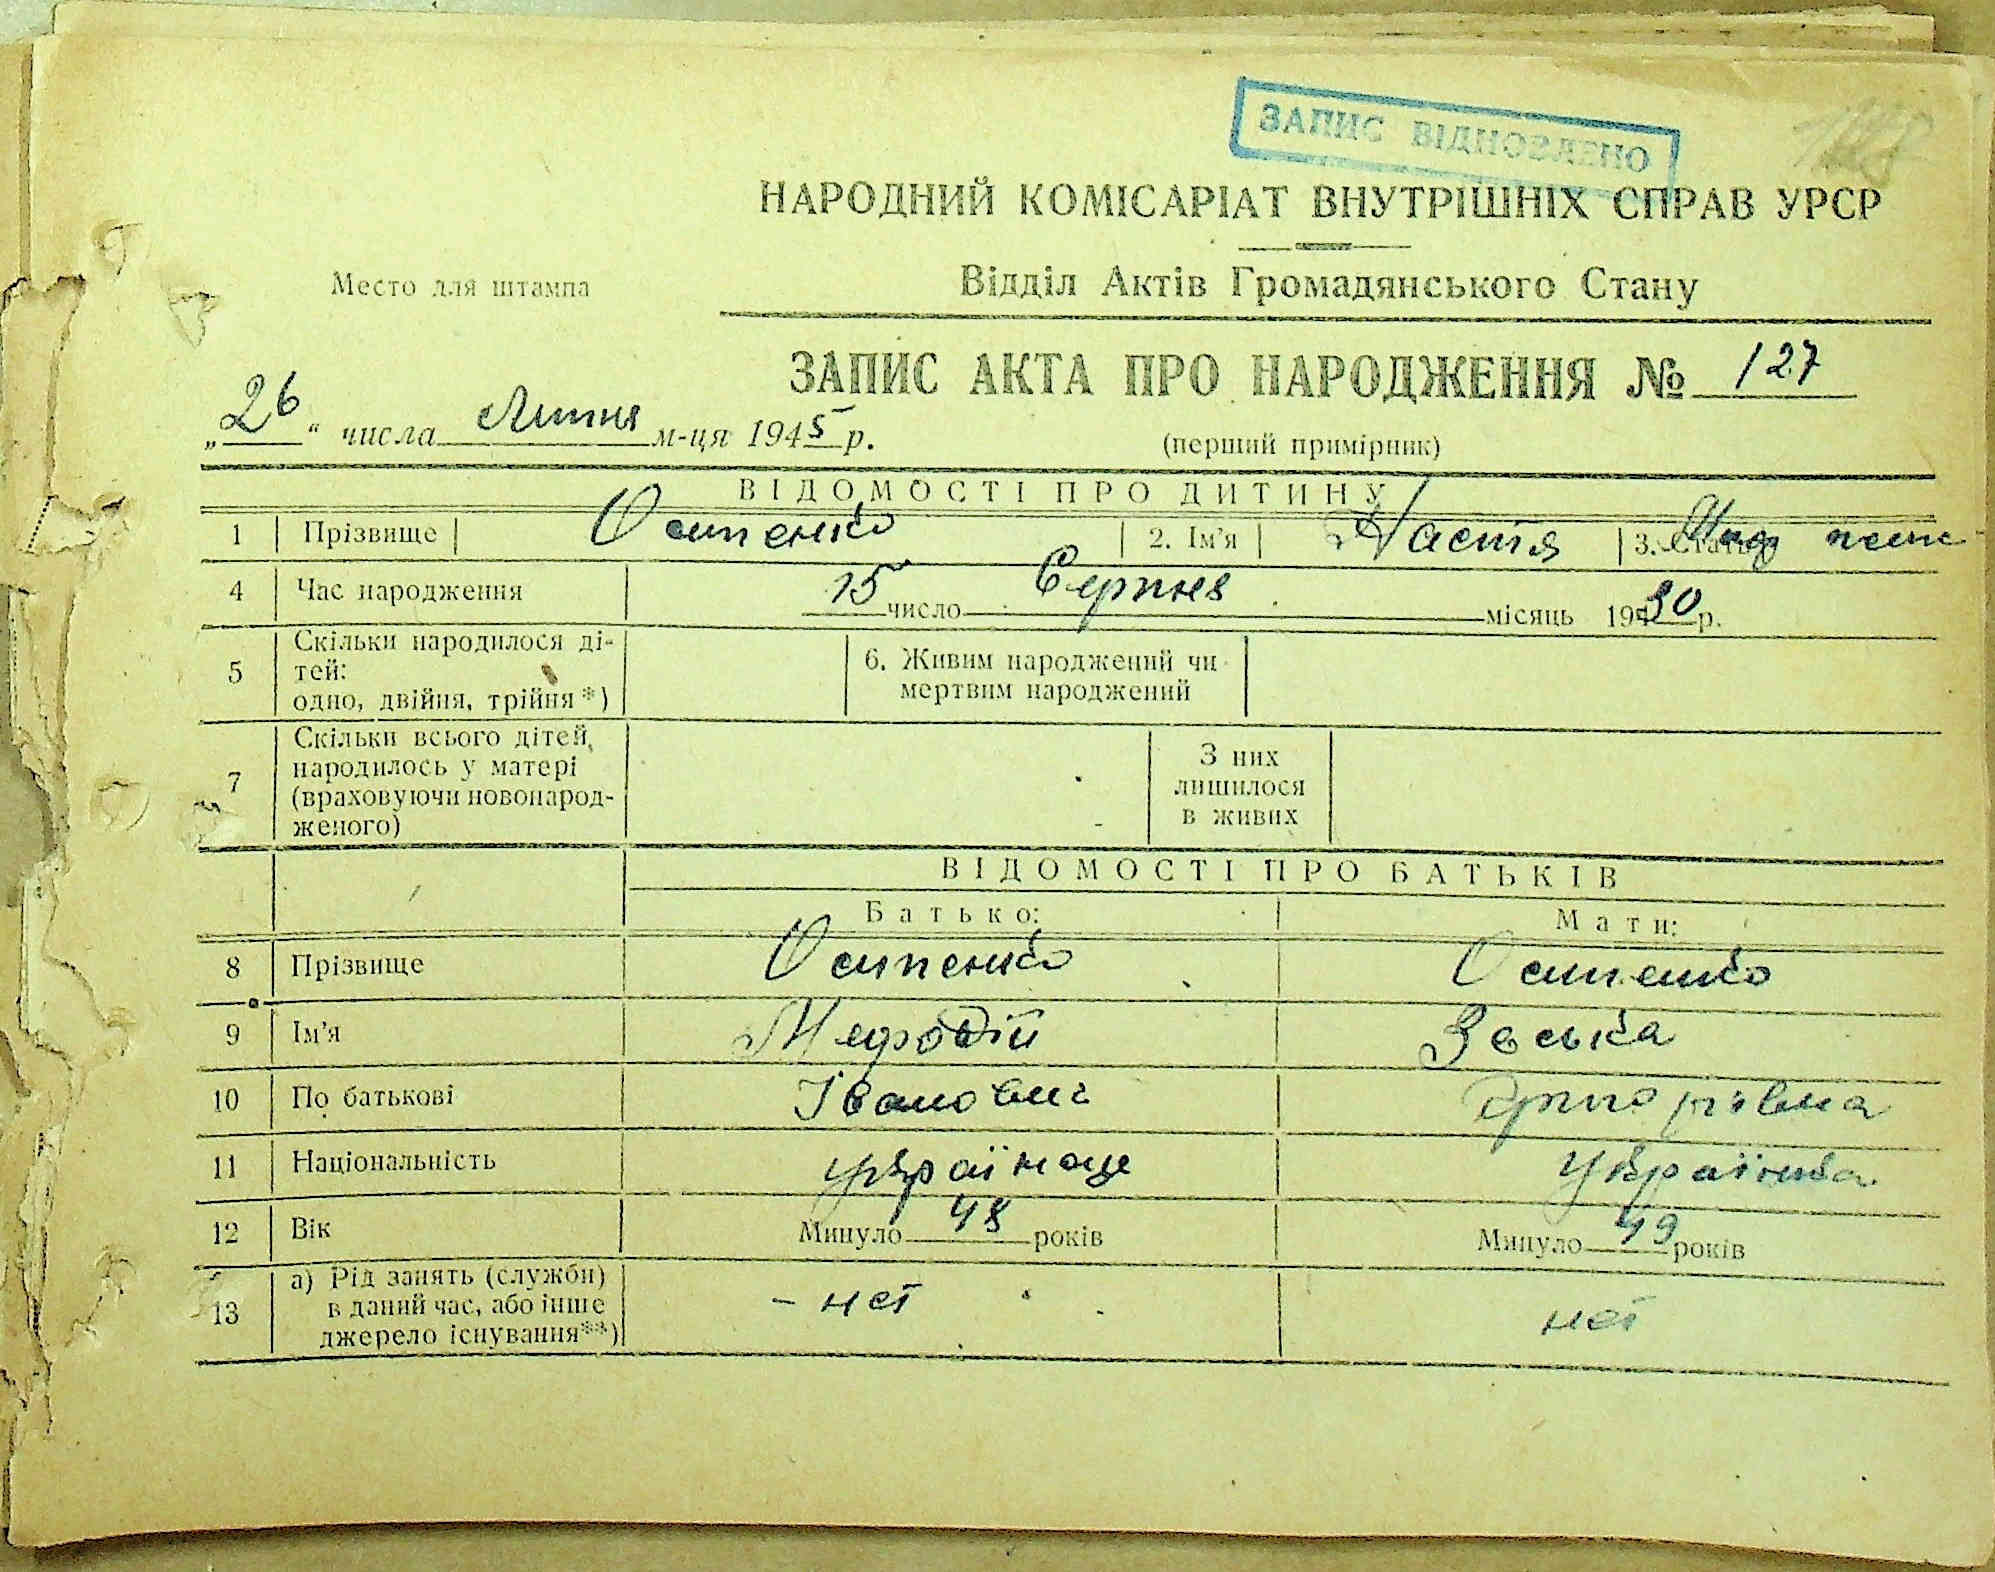 ЗАПИС ВІДНОВЛЕНО
НАРОДНИЙ КОМІСАРІАТ ВНУТРІШНІХ СПРАВ УРСР
Место для штампа
Відділ Актів Громадянського Стану
ЗАПИС АКТА ПРО НАРОДЖЕННЯ № 127
„26“ числа Липня м-ця 1945 р.
(перший примірник)
ВІДОМОСТІ ПРО ДИТИНУ
1 Прізвище Осипенко 2. Ім'я Настя 3. Стать
4 Час народження 15 число Серпня місяць 1930 р.
5 Скільки народилося ді-
тей:
одно, двійня, трійня*)
6. Живим народжений чи
мертвим народжений
7 Скільки всього дітей
народилось у матері
(враховуючи новонарод-
женого)
З них
лишилося
в живих
ВІДОМОСТІ ПРО БАТЬКІВ
Батько: Мати:
8 Прізвище Осипенко Осипенко
9 Ім'я Мефодій Зоська
10 По батькові Іванович Григорівна
11 Національність українец Українка
12 Вік Минуло 48 років Минуло 49 років
13 а) Рід занять (служби)
в даний час, або інше
джерело існування**)
- нет нет